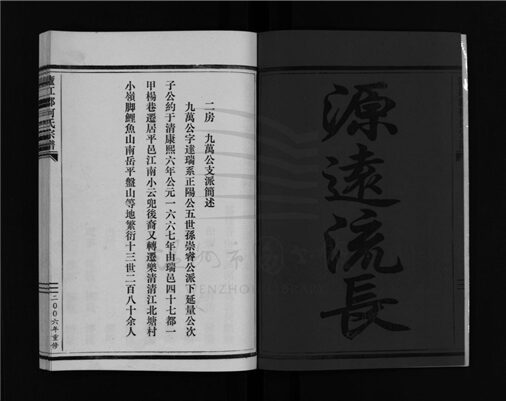 源遠流長
二房　九萬公支派簡述
九萬公字達瑞系正陽公五世孫崇睿公派下延量公次
子公約于清康熙六年公元一六六七年由瑞邑四十七都一
甲楊巷遷居平邑江南小云兜後裔又轉遷樂清清江北塘村
小嶺脚鯉魚山南岳平盤山等地繁衍十三世二百八十余人
廬江郡何氏宗譜
二00六年重修